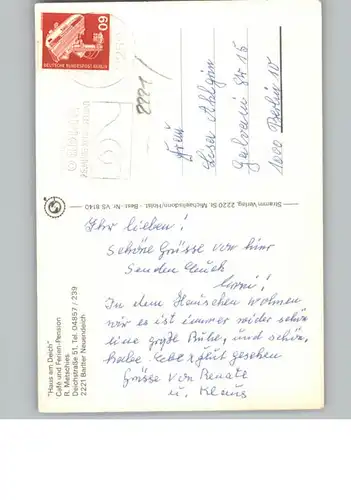 60
DEUTSCHE BUNDESPOST BERLIN
2221
Frau
Lisa Ahlgrim
Galvani Str 15
1000 Berlin 10
Stramm Verlag, 2220 St. Michaelisdonn/Holst. - Best.-Nr. VS 8140
Ihr lieben!
schöne Grüsse von hier
Senden Euch
wir!
In dem Häuschen wohnen
wir es ist immer wider schön
eine große Ruhe, und schön,
habe Ebbe x flut gesehen
Grüsse von Renate
u. Klaus
"Haus am Deich"
Café und Ferien-Pension
R. Metschies
Deichstraße 51, Tel. 04857 / 239
2221 Barlter Neuendeich